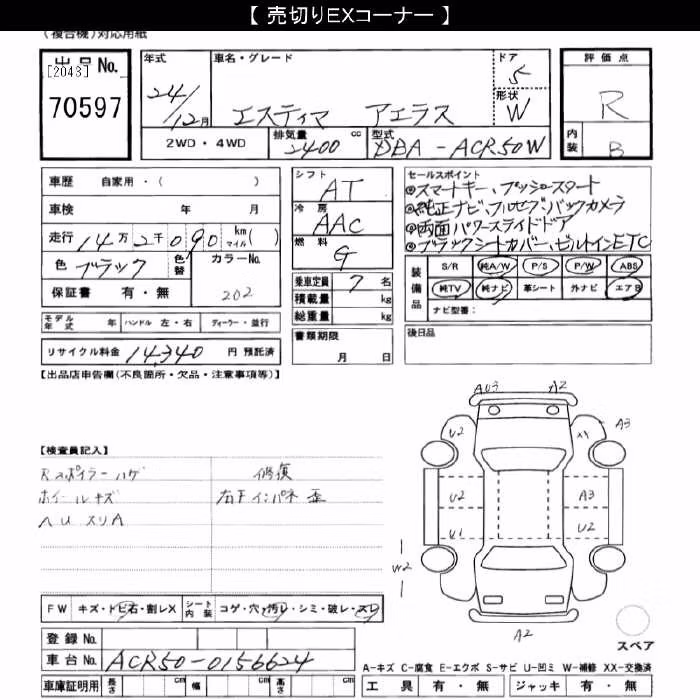 【 売切りEXコーナー 】
(複合機)対応用紙
出品No. [2043] 70597
年式 24/12月
車名・グレード エスティマ アエラス
ドア 5
形状 W
評価点 R
内装 B
2WD・4WD
排気量 2400 cc
型式 DBA-ACR50W
車歴 自家用・( )
車検 年 月
走行 14万2千090 km マイル( )
色 ブラック 色替 カラーNo. 202
保証書 有・無
モデル年式 年 ハンドル 左・右 ディーラー・並行
リサイクル料金 14,340 円 預託済
シフト AT
冷房 AAC
燃料 G
乗車定員 7 名
積載量 kg
総重量 kg
書類期限 月 日
セールスポイント
◎スマートキー、プッシュスタート
◎純正ナビ、フルセグ、バックカメラ
◎両面パワースライドドア
◎ブラックシートカバー、ビルトインETC
装備品 S/R 純A/W P/S P/W ABS
純TV 純ナビ 革シート 外ナビ エアB
ナビ型番:
後日品
【出品店申告欄(不良箇所・欠品・注意事項等)】
【検査員記入】
Rスポイラーハゲ 修復
ホイールキズ 右下インパネ歪
ヘUスリA
FW キズ・トビ石・割レX シート内装 コゲ・穴・汚レ・シミ・破レ・スレ
登録No.
車台No. ACR50-0156624
車庫証明用 長さ cm 幅 cm 高さ cm
A03 A2
U2 X1 A3
U2 A3
U1 U2
W2
A2
スペア
A-キズ C-腐食 E-エクボ S-サビ U-凹ミ W-補修 XX-交換済
工具 有・無 ジャッキ 有・無